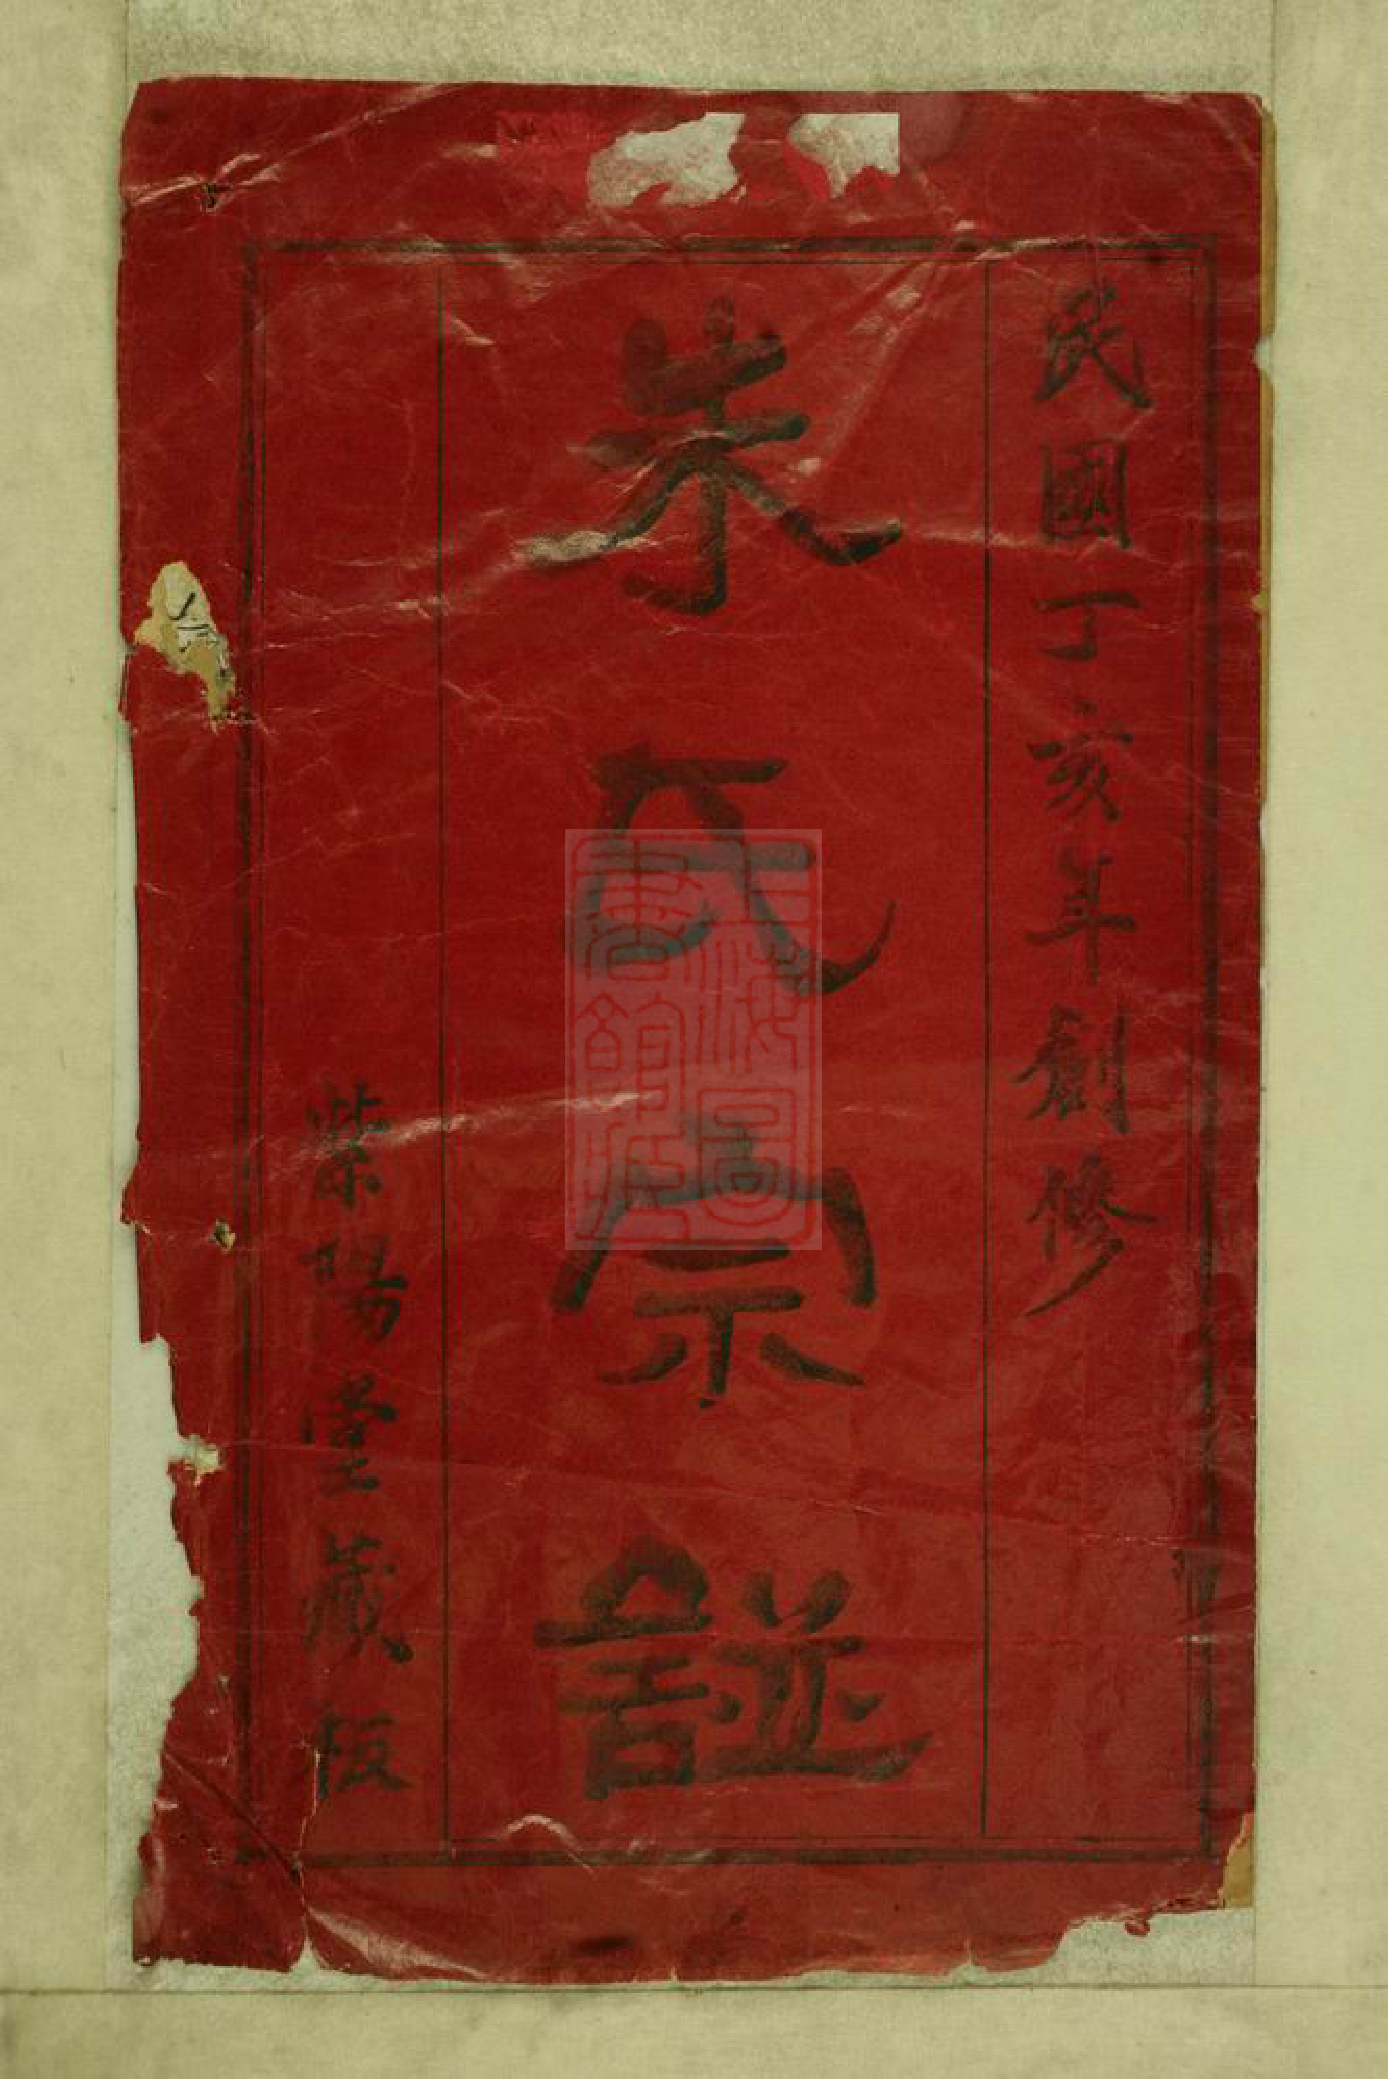 民國丁亥年創修
朱氏宗譜
紫陽堂藏板